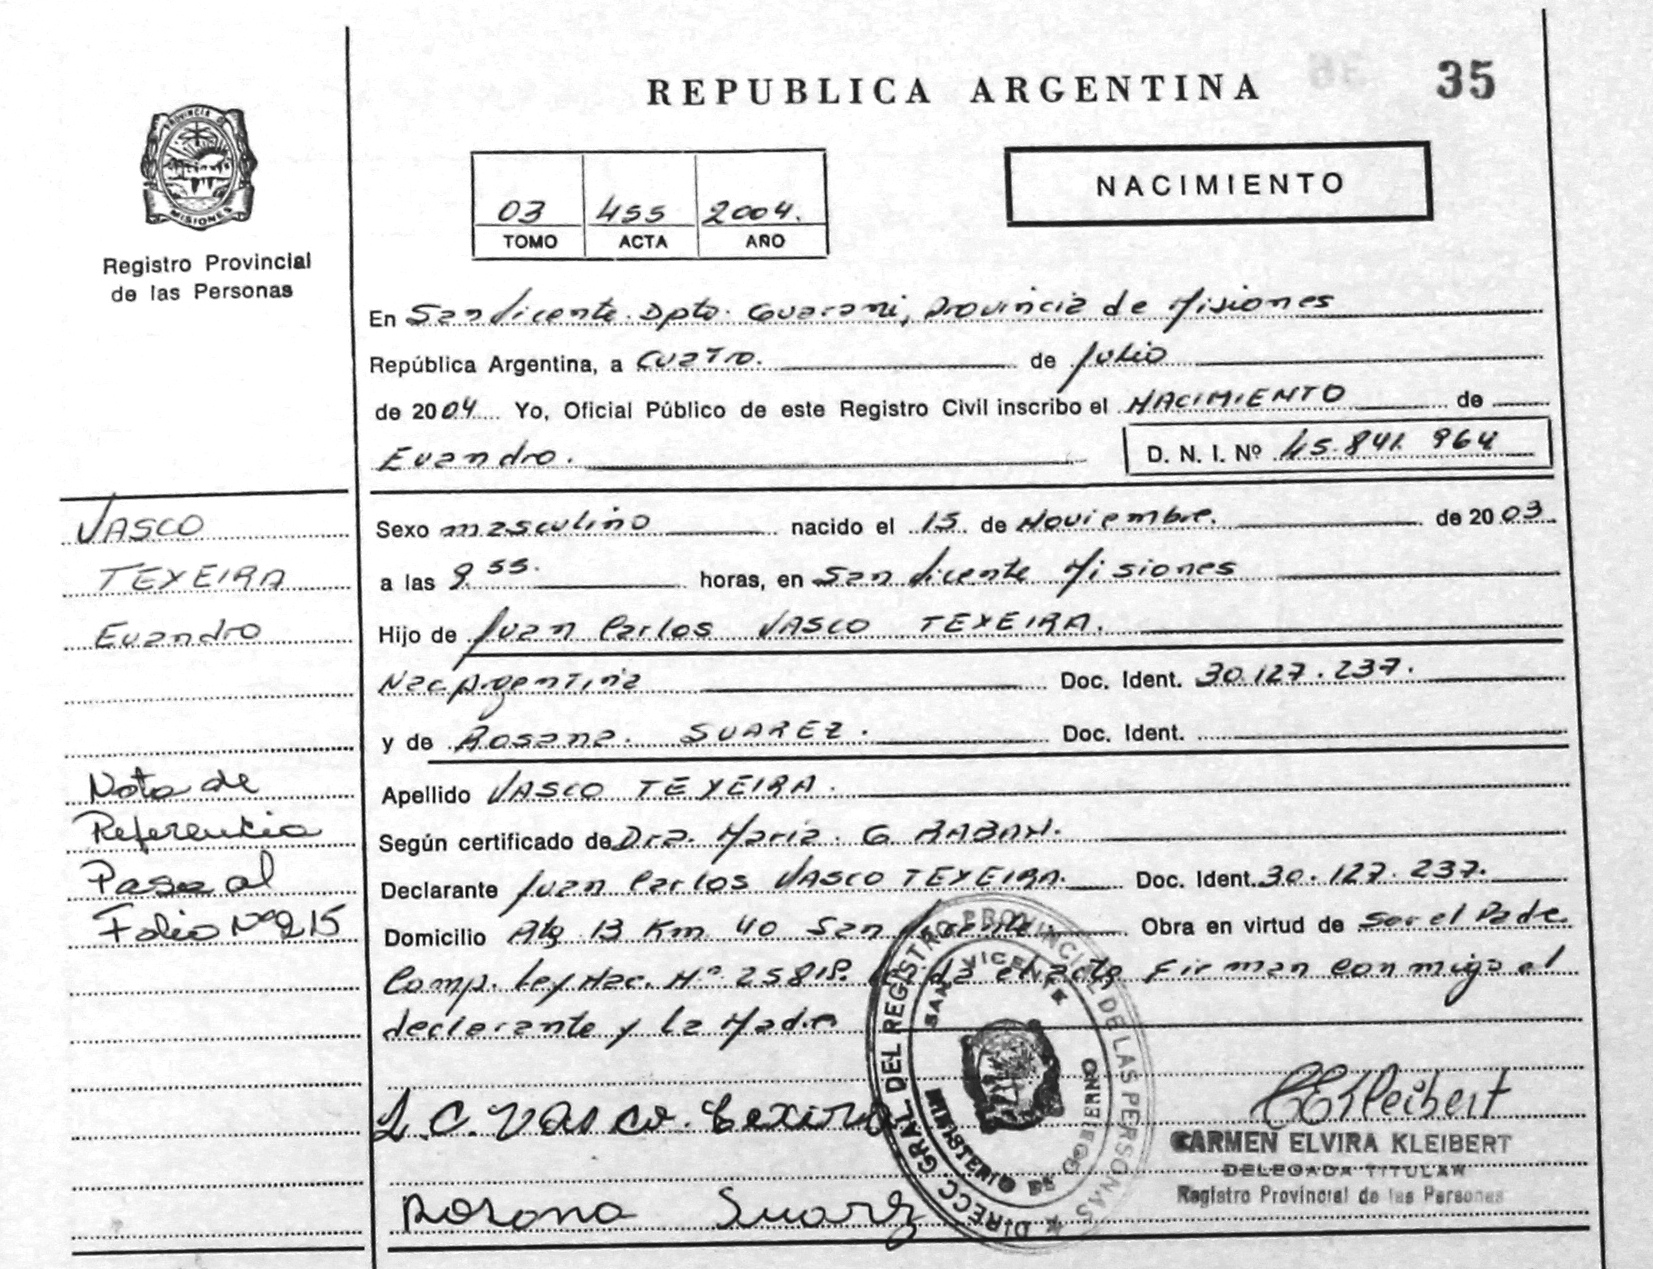 REPUBLICA ARGENTINA
35
PROVINCIA D
MISIONES
Registro Provincial
de las Personas
03 455 2004.
TOMO ACTA AÑO
NACIMIENTO
En San Vicente. Dpto. Guarani, Provincia de Misiones
República Argentina, a Cuatro. de Julio
de 2004 Yo, Oficial Público de este Registro Civil inscribo el NACIMIENTO de
Evandro. D. N. I. Nº 45.841.964
VASCO
TEXEIRA
Evandro
Sexo masculino nacido el 15 de Noviembre. de 2003
a las 9 55. horas, en San Vicente Misiones
Hijo de Juan Carlos VASCO TEXEIRA.
Nac Argentina Doc. Ident. 30.127.237.
y de Rosana. SUAREZ. Doc. Ident.
Apellido VASCO TEXEIRA.
Según certificado de Dra. Maria. G. RABAN.
Declarante Juan Carlos VASCO TEXEIRA. Doc. Ident. 30.127.237.
Domicilio Alg 13 Km 40 San Vicente Obra en virtud de ser el Padre.
Comp. Ley Nac. Nº 25818. el acto Firman conmigo el
declarante y la Madre
Nota de
Referencia
Pasa al
Folio Nº 215
J.C. Vasco. texeira
Rosana Suarez
DIRECC. GRAL. DEL REGISTRO PROVINCIAL DE LAS PERSONAS
SAN VICENTE
MINISTERIO DE GOBIERNO
CEKleibert
CARMEN ELVIRA KLEIBERT
DELEGADA TITULAR
Registro Provincial de las Personas